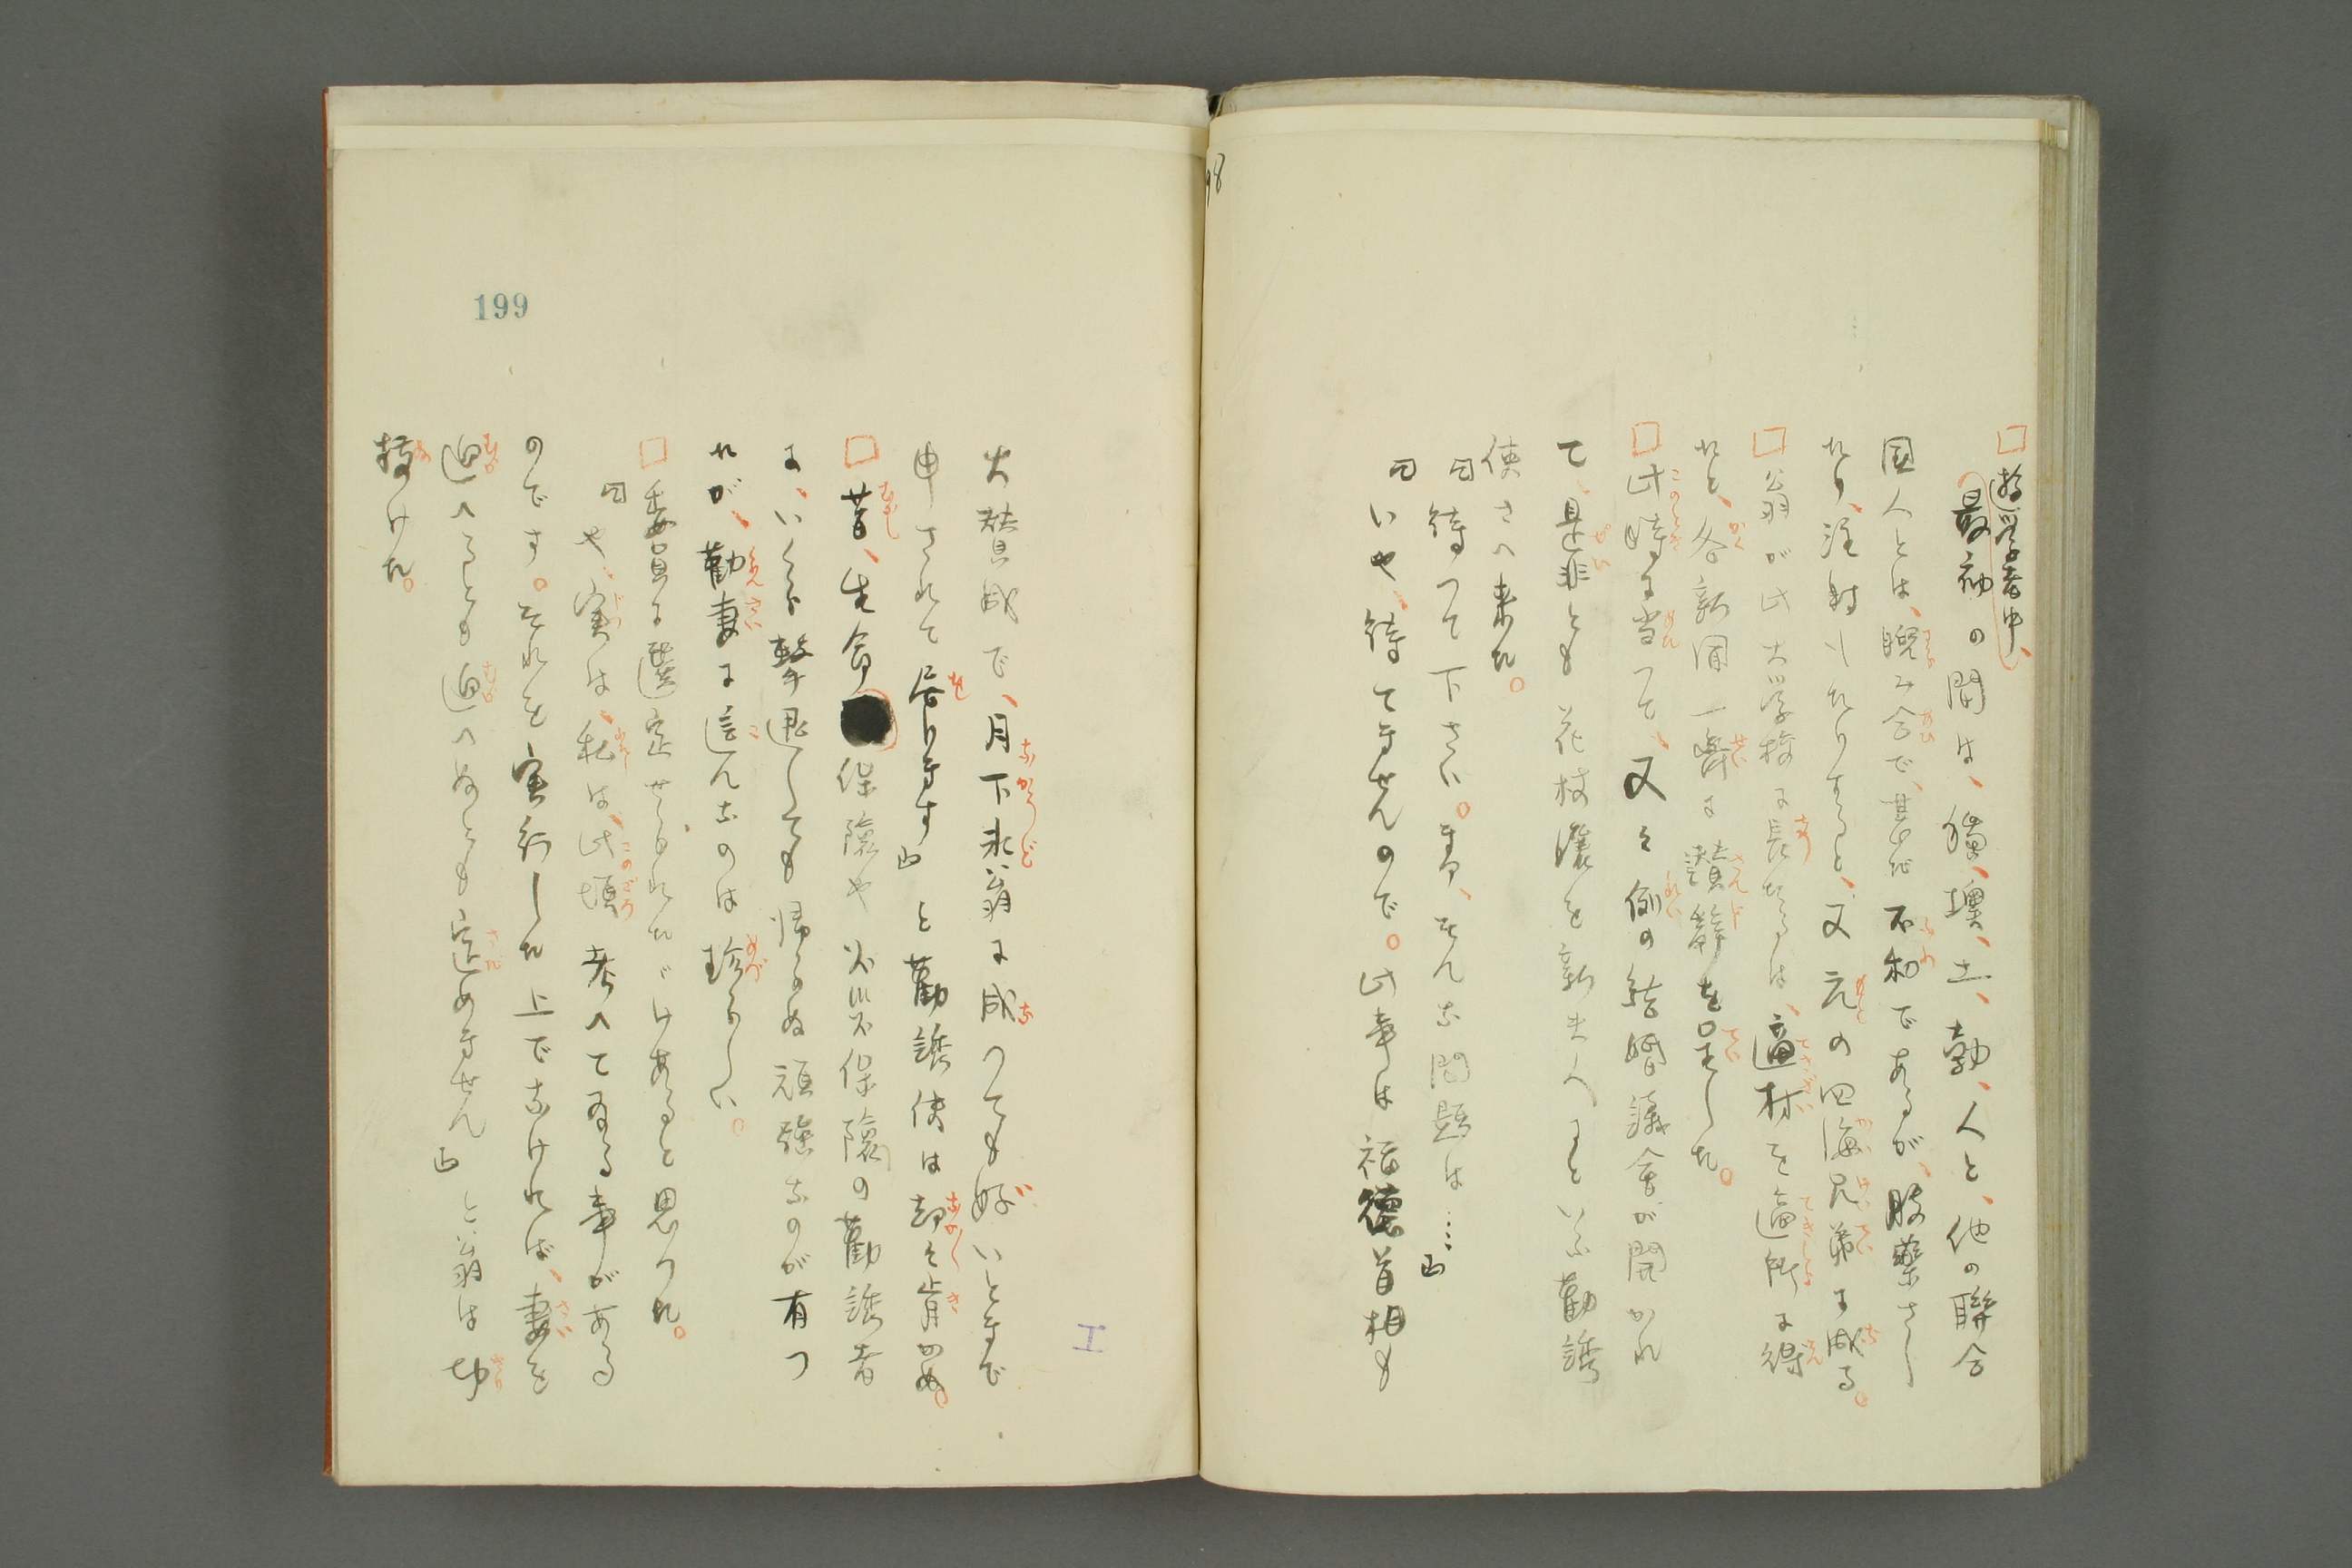 98
□遊学者中、
最初の間は、獨、墺、土、勃、人と、他の聯合
国人とは、睨み合で、甚だ不和であるが、膠薬さし
たり、注射したりすると、又元の四海兄弟に成る。
□翁が此大学校に長たるは、適材を適所に得
たと、各新聞一齊に讃辞を呈した。
□此時に当つて、又々例の結婚議会が開かれ
て、是非とも花枝孃を新夫人にといふ勧誘
使さへ来た。
「待つて下さい。まア、そんな問題は……」
「いや、待てませんので。此事は福徳首相も
199
大賛成で、月下氷翁に成つても好いとまで
申されて居ります」と勧誘使は却々肯かぬ。
□昔、生命保險や火災保險の勧誘者
に、いくら撃退しても帰らぬ頑強なのが有つ
たが、勧妻に這んなのは珍らしい。
□委員に選定せられただけあると思つた。
「や、実は、私は、此頃考へてゐる事がある
のです。それを実行した上でなければ、妻を
迎へるとも迎へぬとも定めません」と翁は切
抜けた。
エ